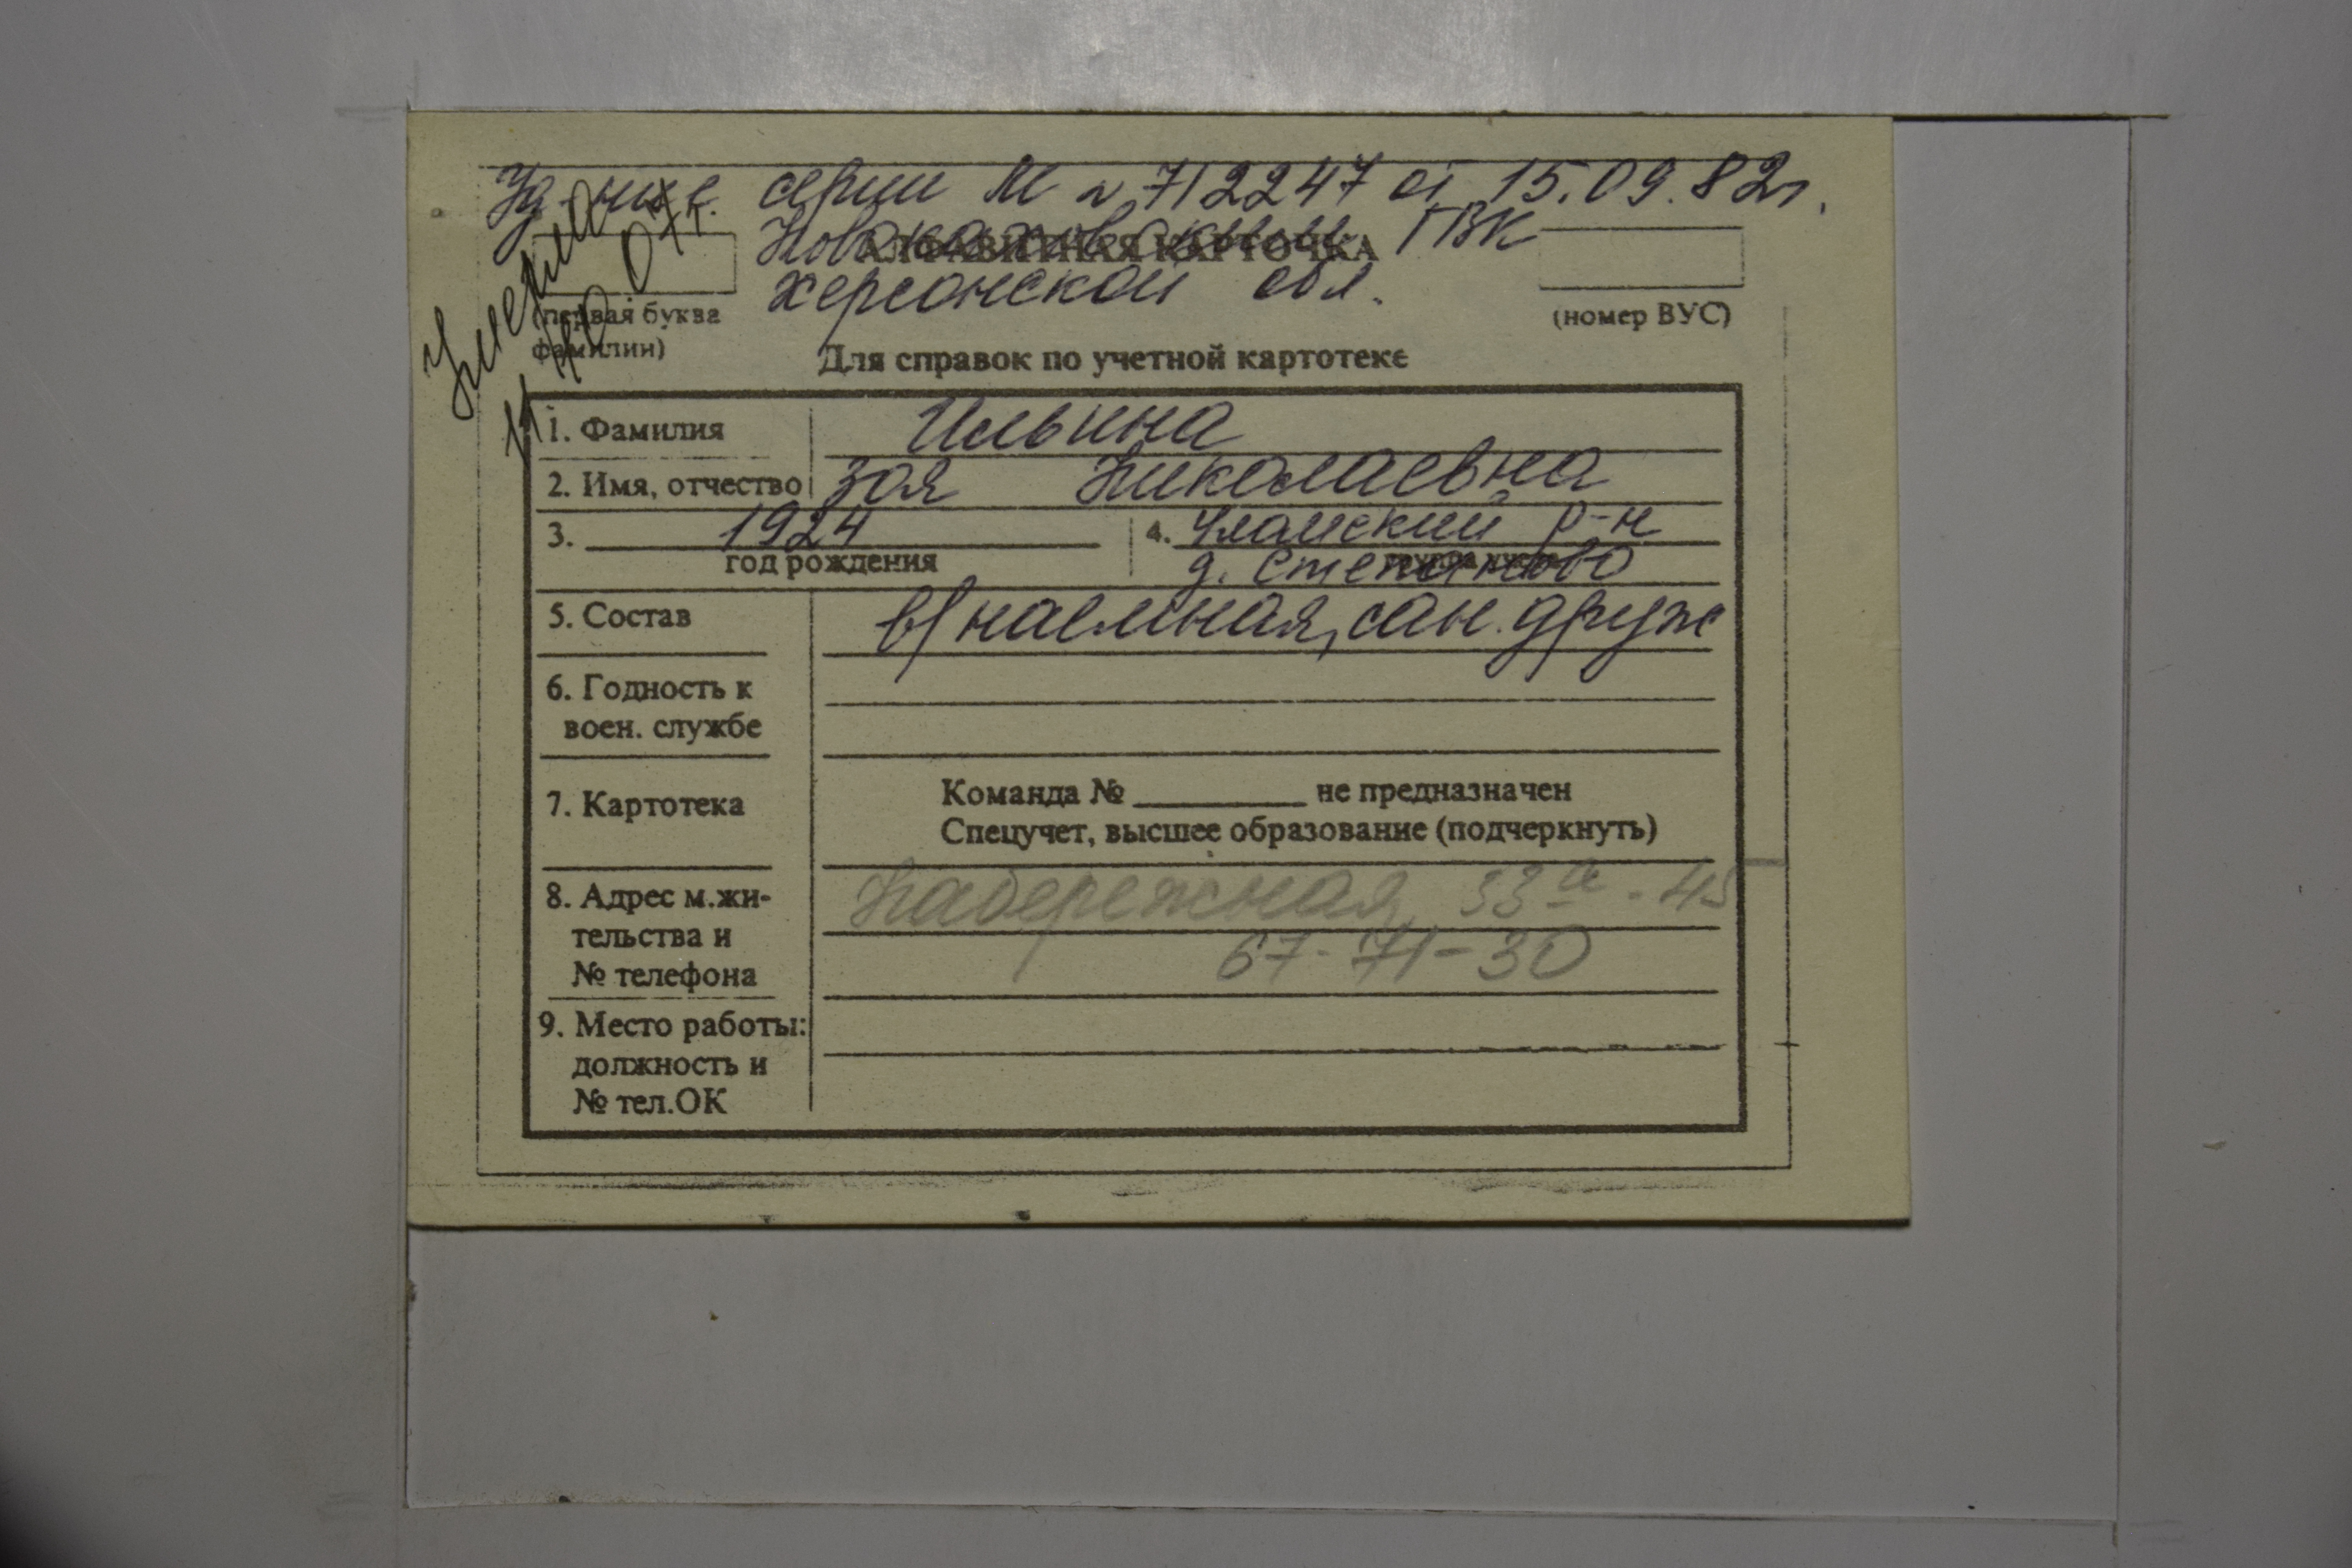 Уд-ние серии М № 712247 от 15.09.82г.
Новокаховским ГВК
АЛФАВИТНАЯ КАРТОЧКА
Херсонской обл.
Умерла
07г.
(первая буква
фамилии)
(номер ВУС)
Для справок по учетной картотеке
1. Фамилия Ильина
2. Имя, отчество Зоя Николаевна
3. 1924 4. р-н
год рождения д. Степаново
5. Состав в/наемная, сан. друж
6. Годность к
воен. службе
7. Картотека Команда № не предназначен
Спецучет, высшее образование (подчеркнуть)
8. Адрес м.жи- Набережная 53а - 45
тельства и 67-71-30
№ телефона
9. Место работы:
должность и
№ тел.ОК